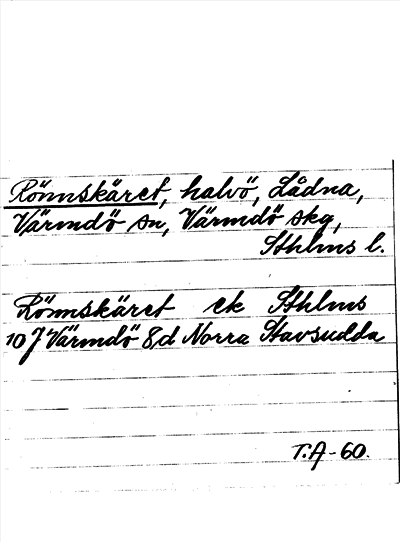 Rönnskäret, halvö, Lådna,
Värmdö sn, Värmdö skg,
Sthlms l.
Rönnskäret ek Sthlms
10 J Värmdö 8d Norra Stavsudda
T.A-60.